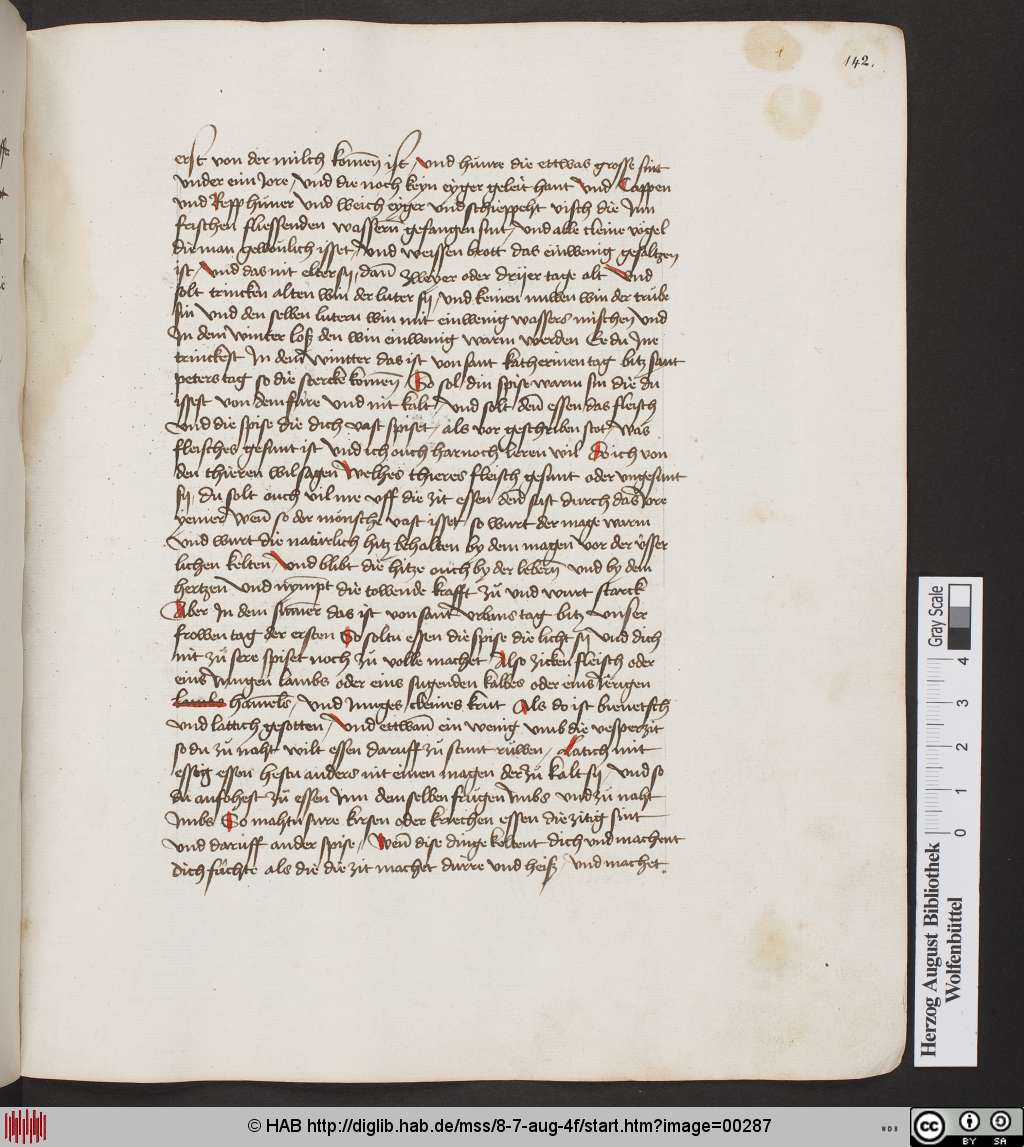 142.
erst von der milch komen ist / vnd hünre die ettwas grosse sint
vnder eim Jore / vnd die noch keyn eyger geleit hant vnd Cappen
vnd Repphüner vnd weich eyger vnd schieppeht visch die Jnn
frischen fliessenden wassern gefangen sint / vnd alle cleine vögel
die man gewonlich isset / vnd weissen brott das ein wenig gesaltzen
ist / vnd das nit elter sy / dann zweyer oder dryer tage alt vnd
solt trincken alten win der luter sy / vnd keinen nuwen win der trübe
sin vnd den selben lutern win mit ein wenig wassers mischen vnd
Jn dem winter loß den win ein wenig warm werden Ee du Jne
trinckest Jn dem wintter das ist von sant katherinen tag bitz sant
peters tag so die stercke komen So sol din spise warm sin die du
issest von dem füre vnd nit kalt / vnd solt denn essen das fleisch
vnd die spise die dich vast spiset / als vor geschriben stot was
fleisches gesunt ist vnd ich ouch harnoch leren wil So ich von
den thieren wil sagen welhes thieres fleisch gesunt oder vngesunt
sy / du solt ouch vil me vff die zit essen denn sust durch das Jore
yemer wenn so der mönsch vast isset so wurt der mage warm
vnd wurt die natürlich hitz behalten by dem magen vor der vsser
lichen kelten / vnd blibt die hitze ouch by der lebern vnd by dem
hertzen vnd nympt die towende krafft zü vnd wurt starck
Aber Jn dem summer das ist von sant vrbans tag bitz vnser
frowen tag der ersten So soltu essen die spise die licht sy vnd dich
nit zü sere spiset noch zü volle machet Also zicken fleisch oder
eins Jungen lambs oder eins sugenden kalbes oder eins Jerigen
lambs hamels / vnd Junges cleines krut Als do ist bienetsch
vnd lattich gesotten / vnd ettwann ein wenig vmb die vesperzit
so du zü naht wilt essen daruff zü stunt rüwen / Latich mit
essig essen hestu anders nit einen magen der zü kalt sy / vnd so
du anfohest zü essen Jnn dem selben frügen Jmbs vnd zü naht
Jmbs So mahtu sure kirsen oder kriechen essen die zitig sint
vnd daruff ander spise / wenn dise dinge keltent dich vnd machent
dich füchte als die die zit machet dürre vnd heiß / vnd machet
Herzog August Bibliothek
Wolfenbüttel
Gray Scale
0 1 2 3 4
© HAB http://diglib.hab.de/mss/8-7-aug-4f/start.htm?image=00287
WDB
cc BY SA